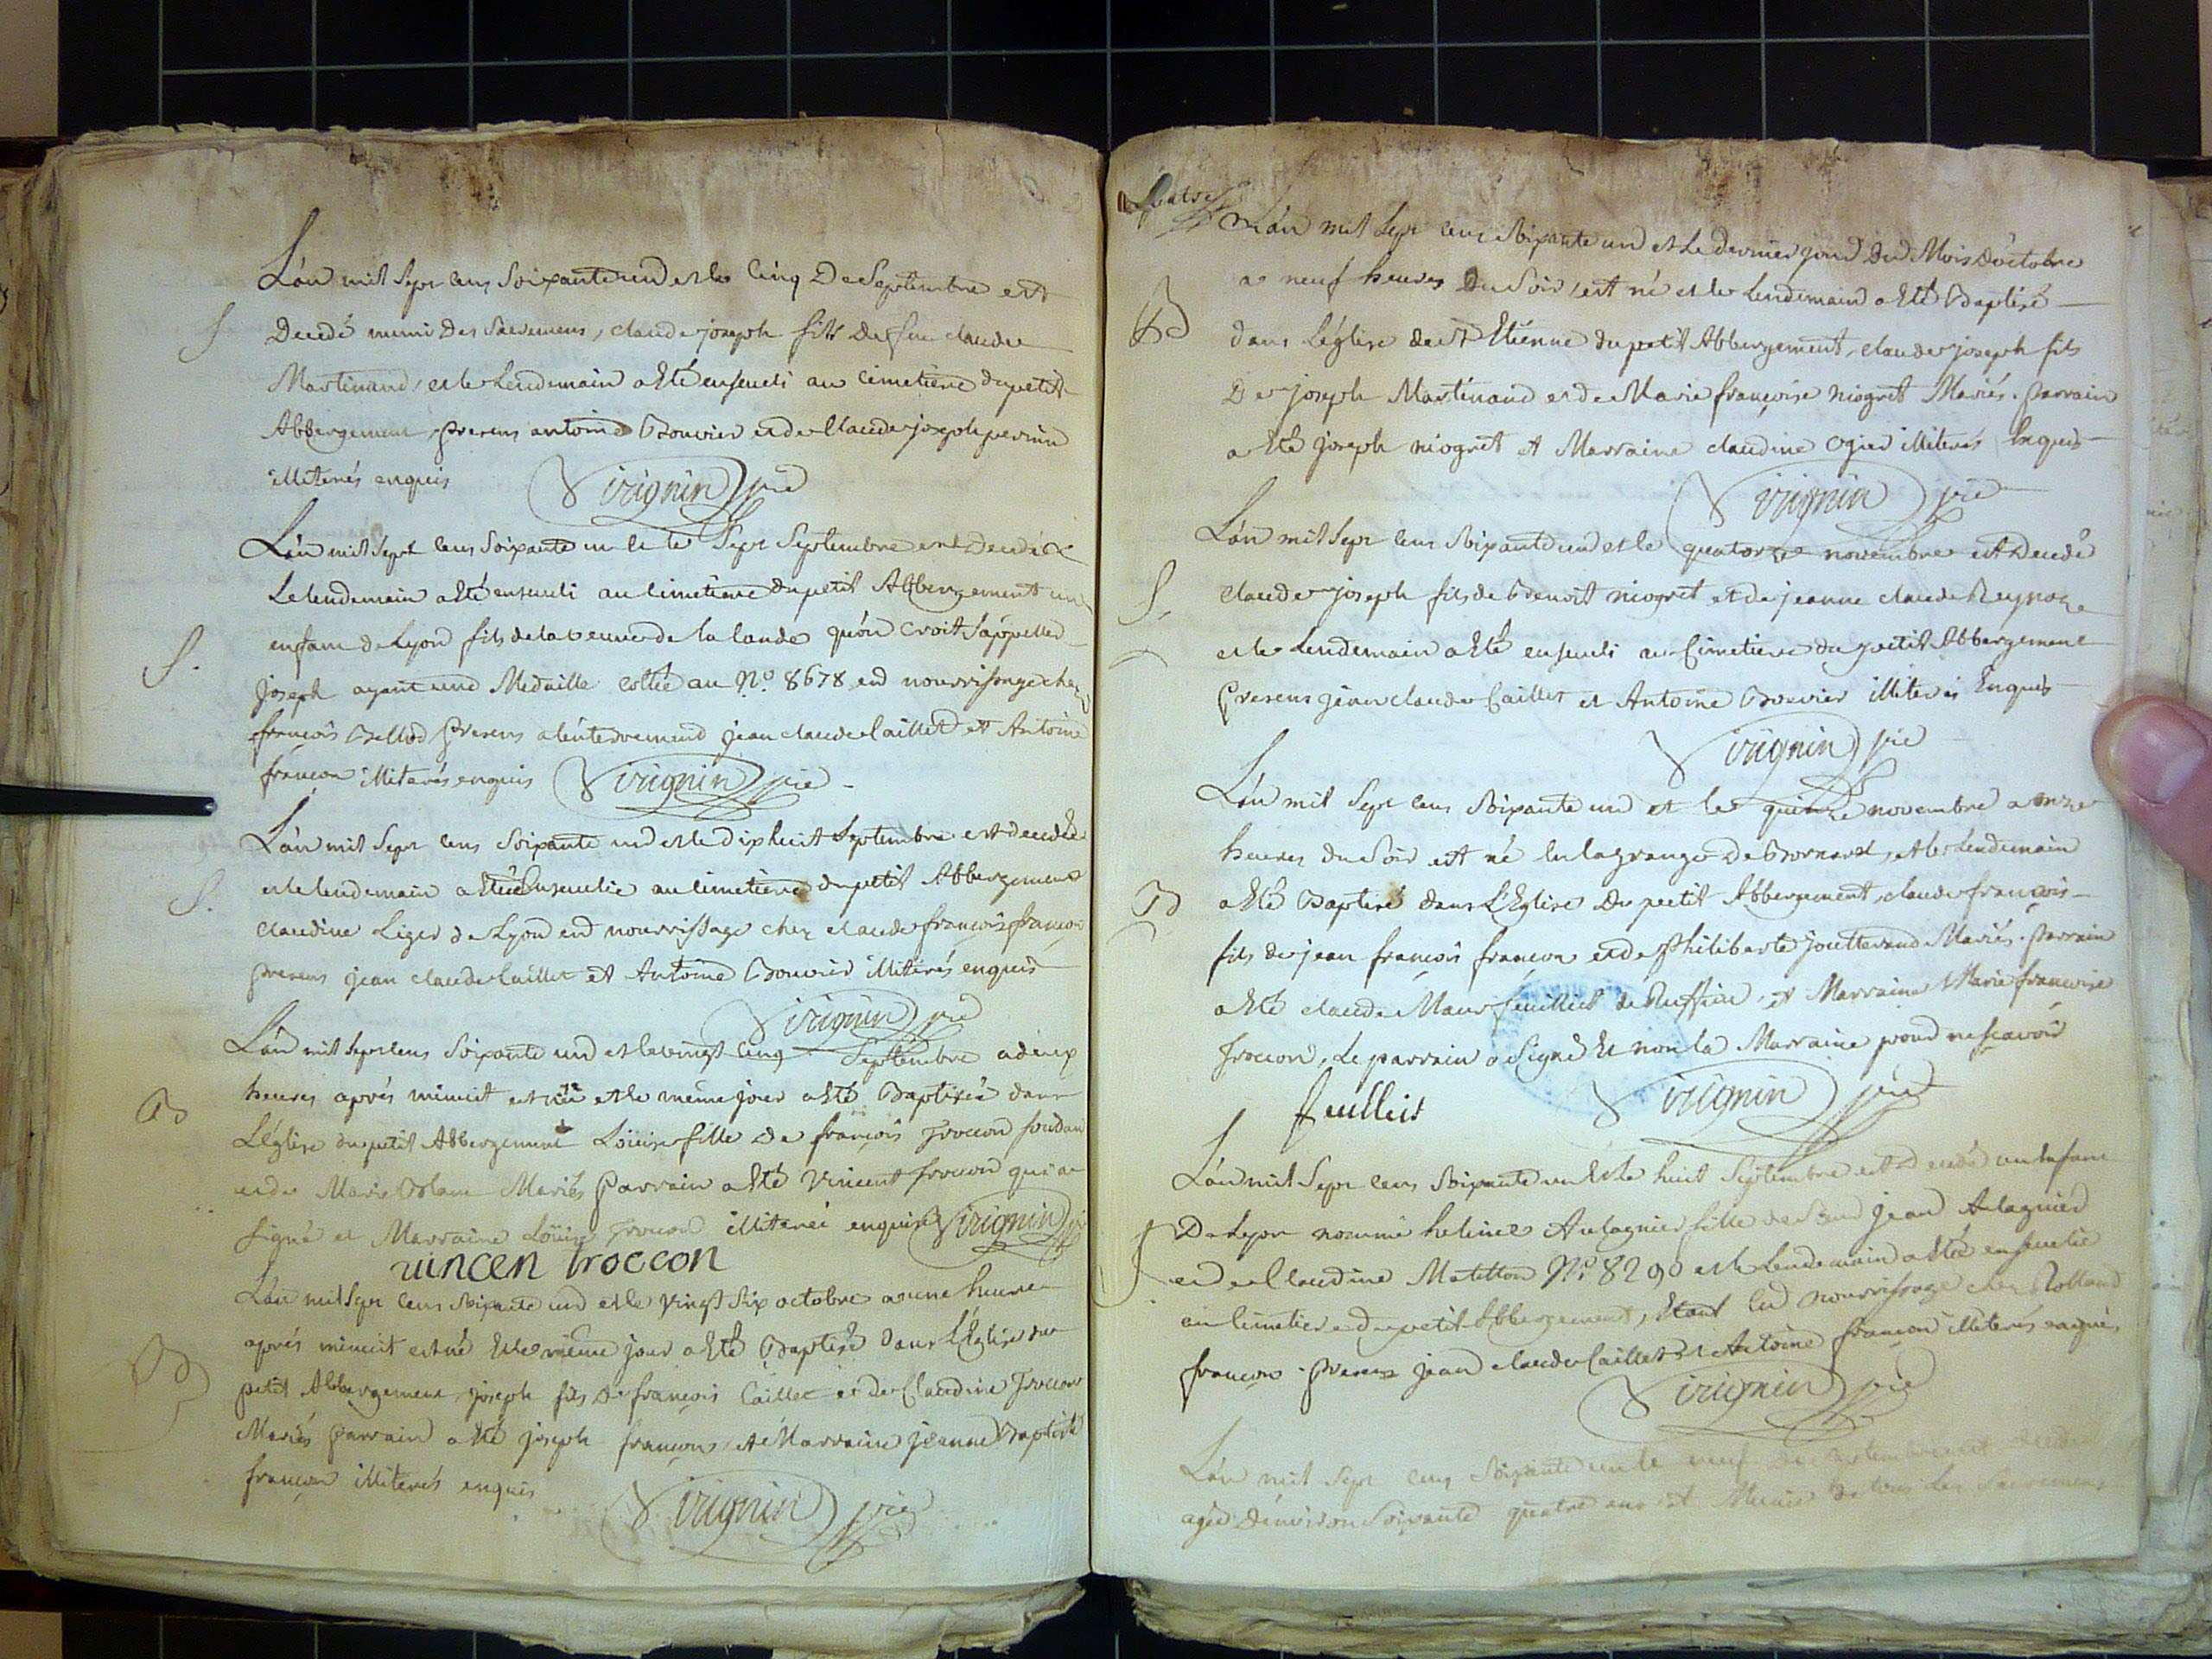 L'an mil sept cens soixante un et le cinq De Septembre est
Decedé muni Des Sacremens, claude joseph fils de feu claude
S
Martinand, et le Lendemain a Eté enseveli au cimetiere du petit
Abbergement, presens antoine Bouvier et de Claude joseph perrin
illiterés enquis Virignin vic
L'an mil sept cens soixante un et le sept Septembre est Decedé &
Le lendemain a Eté enseveli au cimetiere du petit Abbergement un
enfant de Lyon fils de la veuve de la lande qu'on croit s'appeller
S.
joseph ayant une Medaille cottée au N.o 8678 en nourrissage chez
françois Bellod presens a l'enterrement jean claude Caillet et Antoine
françon illiterés enquis Virignin vic
L'an mil sept cens soixante un et le dix huit Septembre est decedée
et le lendemain a Eté Ensevelie au cimetiere du petit Abbergement
S.
claudine Liger de Lyon en nourrissage chez claude françois françon
presens jean claude Caillet et Antoine Bouvier illiterés enquis
Virignin vic
L'an mil sept cens soixante un et le vingt cinq Septembre a deux
heures aprés minuit est née et le même jour a Eté Baptisée dans
B
L'église du petit Abbergement Loüise fille de françois Troccon
et de Marie Mariés Parrain a Eté Vincent Troccon qui a
signé et Marraine Loüise Troccon illiterée enquise Virignin vic
vincen troccon
L'an mil sept cens soixante un et le vingt six octobre a une heure
aprés minuit est né Et le même jour a Eté Baptisé Dans L'Eglise du
B
petit Abbergement, joseph fils De françois Caillet et de Claudine Troccon
Mariés Parrain a Eté joseph françon, et Marraine jeanne Baptiste
françon illiterés enquis
Virignin vic
L'an mil sept cens soixante un et le dernier jour Du Mois D'octobre
a neuf heures Du Soir, est né et le Lendemain a Eté Baptisé
B
dans L'église de St Etienne du petit Abbergement, claude joseph fils
De joseph Martinand et de Marie françoise niogret Mariés. parrain
a Eté joseph niogret et Marraine claudine ogier illiterés Enquis
Virignin vic
L'an mil sept cens soixante un et le quatorze novembre est Decedé
claude joseph fils de Benoit niogret et de jeanne claude
S.
et le Lendemain a Eté enseveli au Cimetiere du petit Abbergement
Presens jean claude Caillet et Antoine Bouvier illiterés Enquis
Virignin vic
L'an mil sept cens soixante un et le quinze novembre a onze
heures du soir est né en la grange De, et le Lendemain
B
a Eté Baptisé dans L'Eglise Du petit Abbergement, claude françois
fils de jean françois françon et de Philiberte jouttevand Mariés. parrain
a Eté claude Feuilliet de Ruffieu, et Marraine Marie françoise
Troccon, Le parrain a Signé Et non la Marraine pour ne sçavoir
feulliet Virignin vic
L'an mil sept cens soixante un Et le huit Septembre est decedé un enfant
De Lyon nommé Aulagnier fille de jean Aulagnier
S
et de Claudine N.o 8290 et le Lendemain a Eté ensevelie
au cimetiere du petit Abbergement, Etant En nourrissage chez Rolland
françon. presens jean claude Caillet et Antoine françon illiterés enquis
Virignin vic
L'an mil sept cens soixante un le neuf est decedé
agé D'environ soixante quatre ans et Munie De tous Les Sacremens